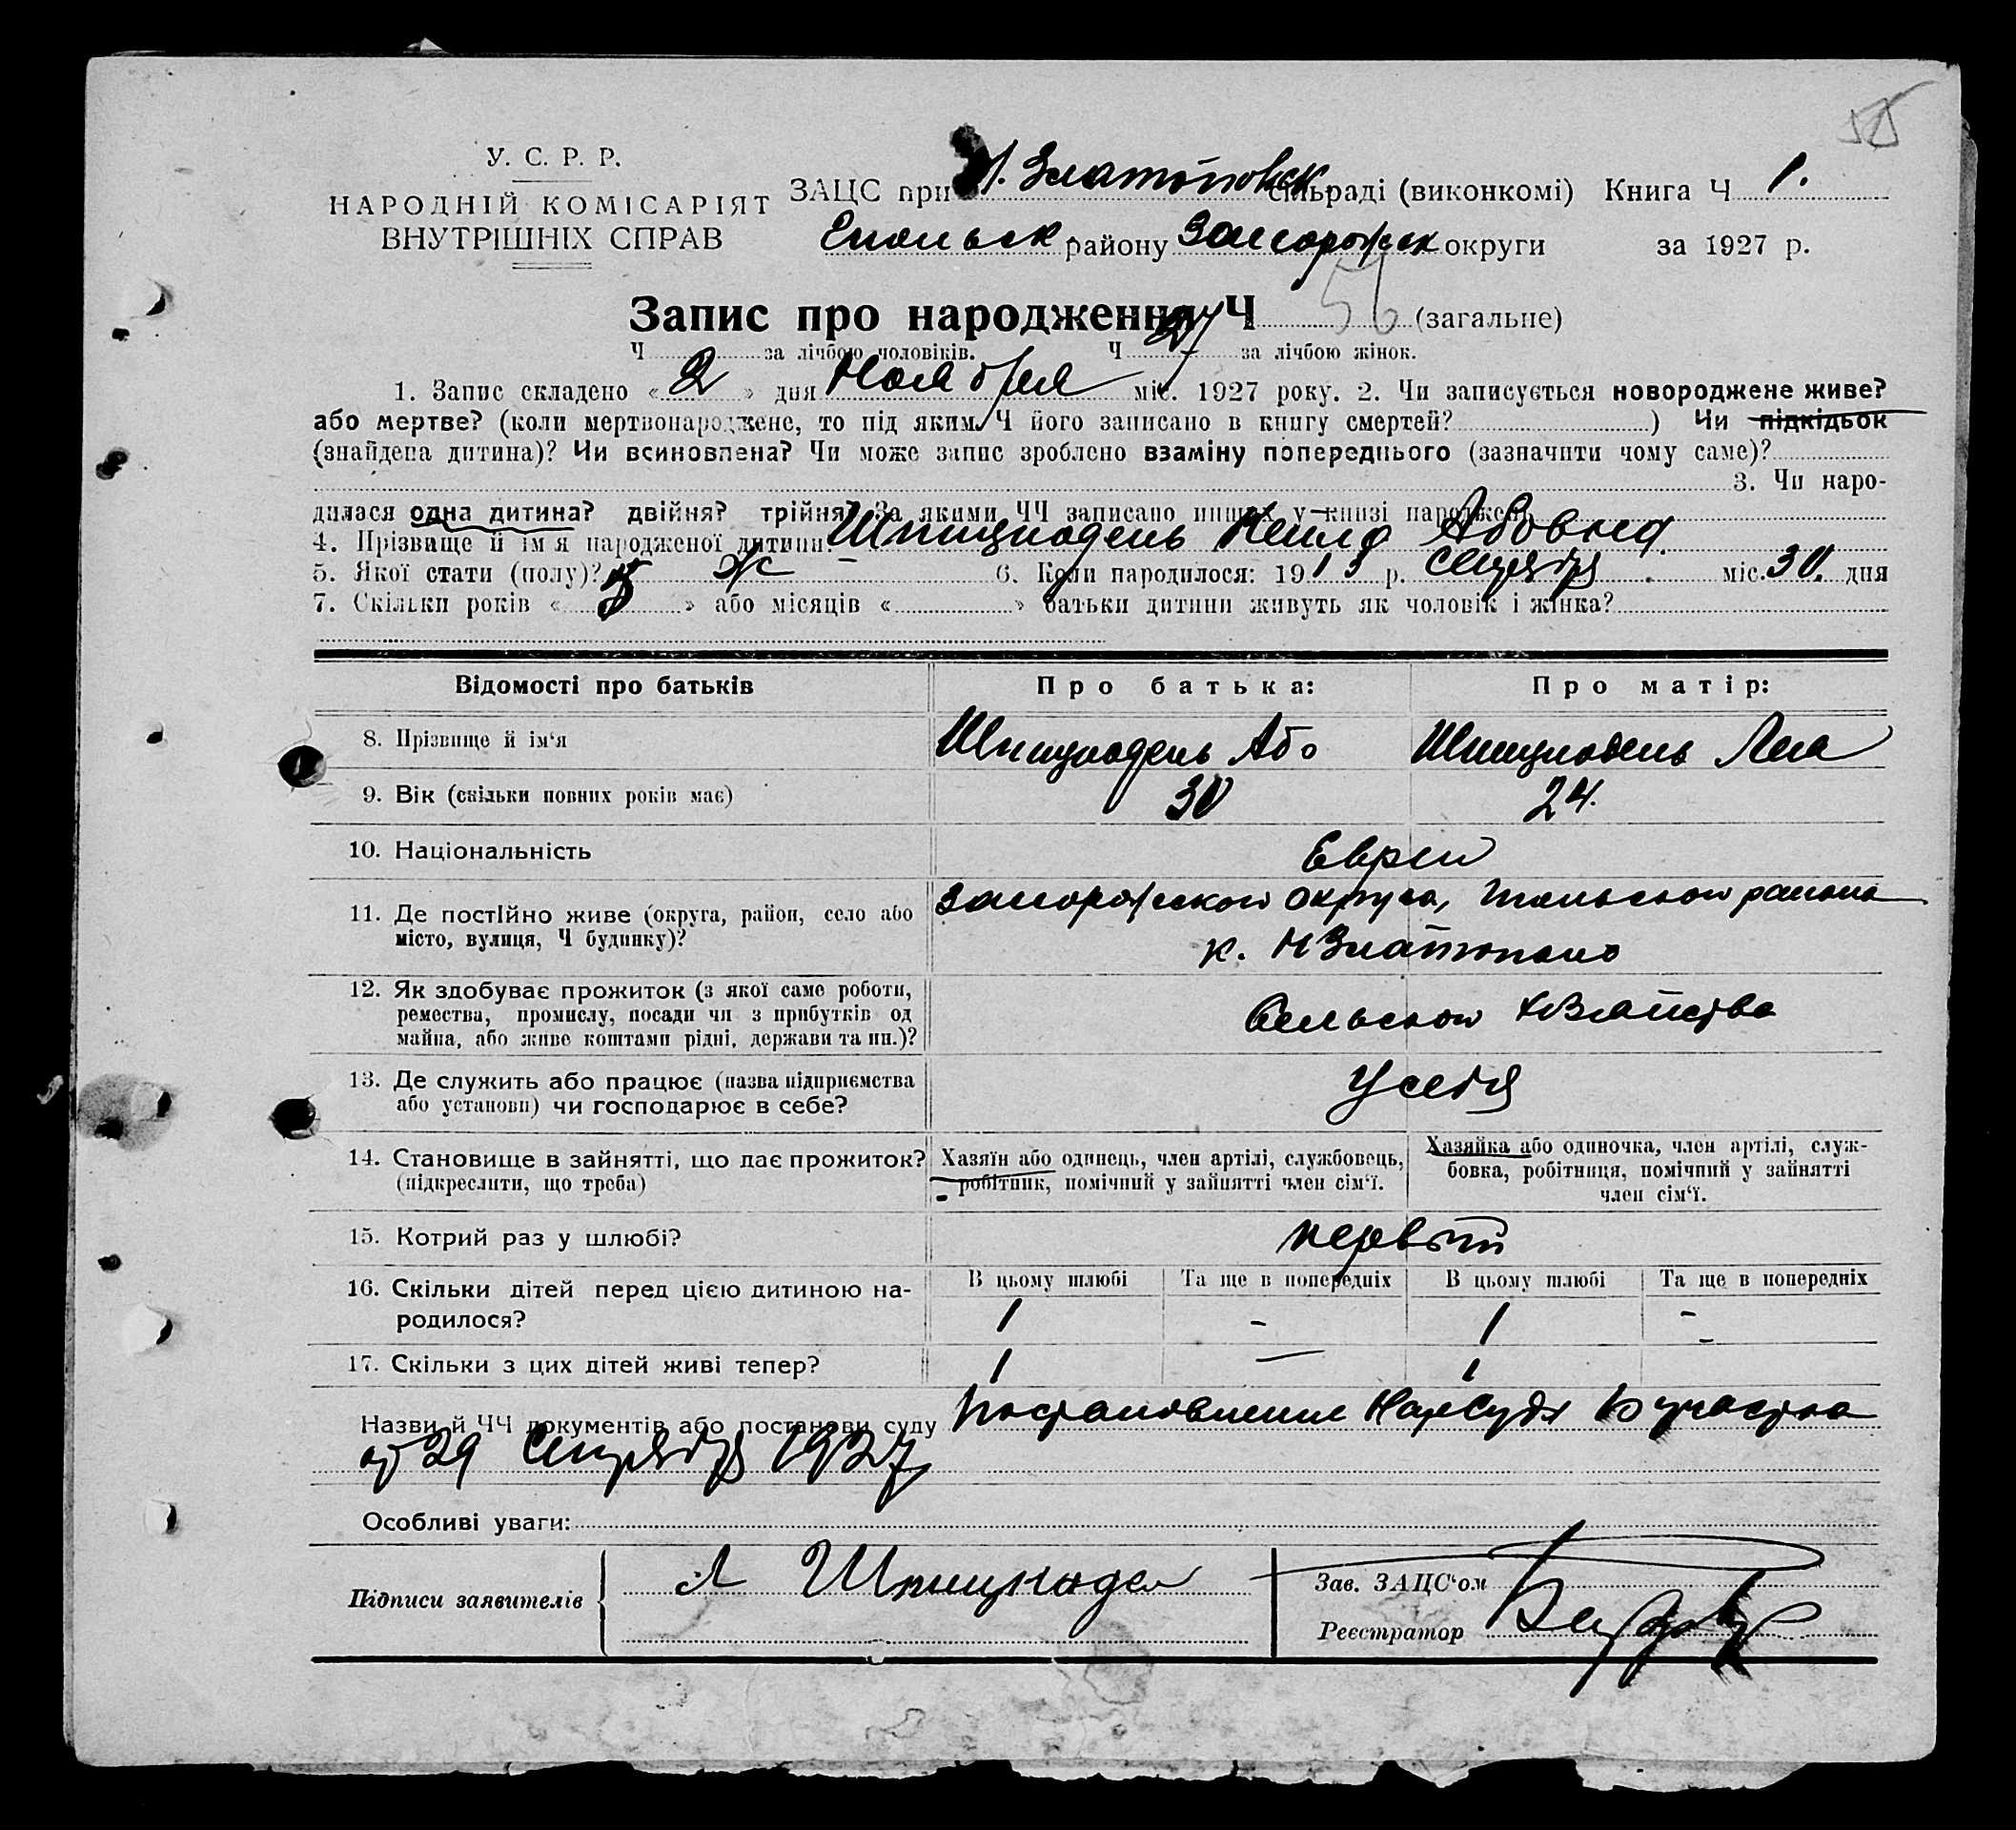 У. С. Р. Р.
НАРОДНІЙ КОМІСАРІЯТ
ВНУТРІШНІХ СПРАВ
ЗАЦС при Н. Златополск. сільраді (виконкомі) Книга Ч 1.
району Запорожск округи за 1927 р.
Запис про народження Ч 56 (загальне)
Ч за лічбою чоловіків. Ч 27 за лічбою жінок.
1. Запис складено « 2 » дня Ноября міс. 1927 року. 2. Чи записується новороджене живе?
або мертве? (коли мертвонароджене, то під яким Ч його записано в книгу смертей? ) Чи підкідьок
(знайдена дитина)? Чи всиновлена? Чи може запис зроблено взаміну попереднього (зазначити чому саме)?
3. Чи наро-
дилася одна дитина? двійня? трійня? За якими ЧЧ записано инших у книзі народжень
4. Прізвище й ім'я народженої дитини: Шпицнадель Абовна
5. Якої стати (полу)? ж 6. Коли народилося: 191 р. Сентября міс. 30. дня
7. Скільки років « » або місяців « » батьки дитини живуть як чоловік і жінка?
Відомості про батьків
Про батька:
Про матір:
8. Прізвище й ім'я
Шпицнадель Або
Шпицнадель Лея
9. Вік (скільки повних років має)
30
24.
10. Національність
Евреи
11. Де постійно живе (округа, район, село або
місто, вулиця, Ч будинку)?
Запорожского Округа, района
к. НЗлатополь
12. Як здобуває прожиток (з якої саме роботи,
ремества, промислу, посади чи з прибутків од
майна, або живе коштами рідні, держави та ин.)?
Сельского хозяйства
13. Де служить або працює (назва підприємства
або установи) чи господарює в себе?
У себя
14. Становище в зайнятті, що дає прожиток?
(підкреслити, що треба)
Хазяїн або одинець, член артілі, службовець,
робітник, помічний у зайнятті член сім'ї.
Хазяйка або одиночка, член артілі, служ-
бовка, робітниця, помічний у зайнятті
член сім'ї.
15. Котрий раз у шлюбі?
первый
16. Скільки дітей перед цією дитиною на-
родилося?
В цьому шлюбі Та ще в попередніх В цьому шлюбі Та ще в попередніх
1 - 1 -
17. Скільки з цих дітей живі тепер?
1 — 1 -
Назви й ЧЧ документів або постанови суду Постановление НарСуда участка
от 29 Сентября 1927
Особливі уваги:
Підписи заявителів
Л Шпицнадел
Зав. ЗАЦС'ом
Реєстратор